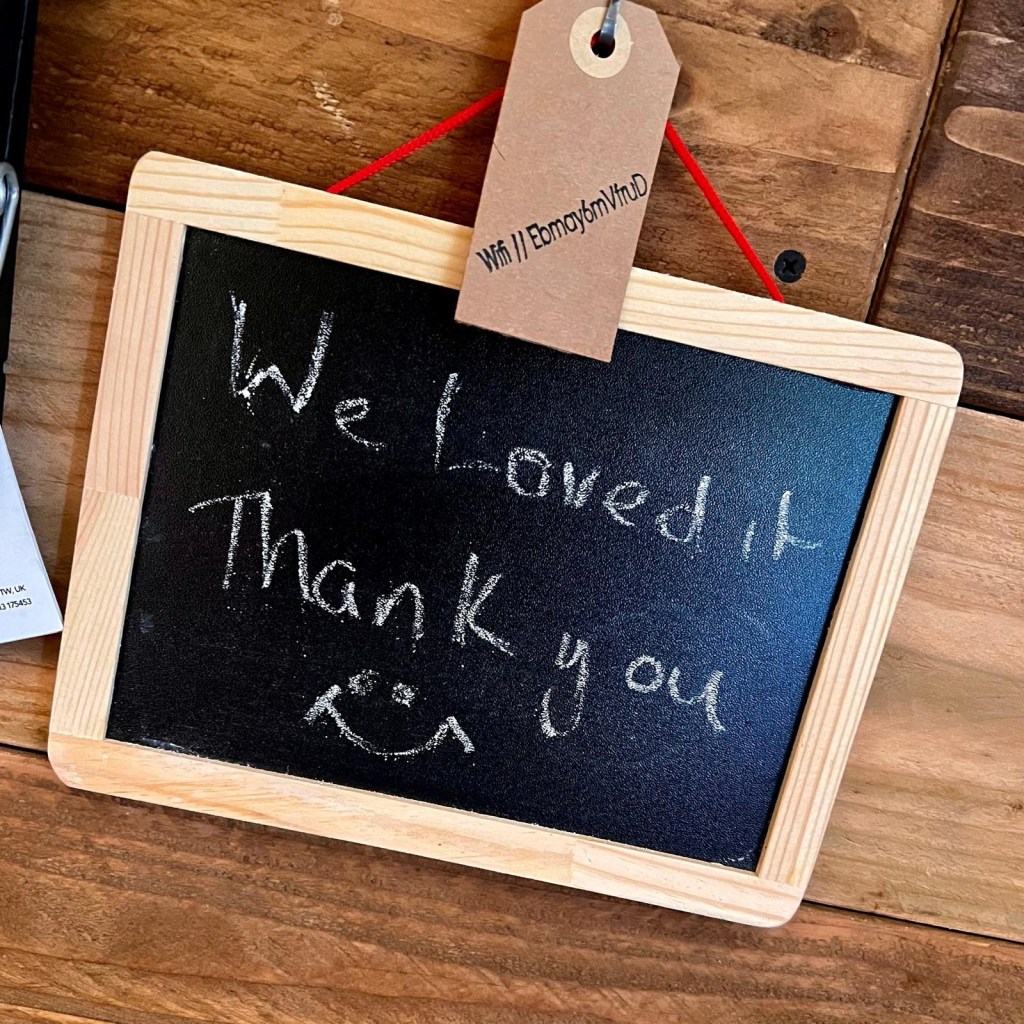 Wifi // Ebmay6mVfruD
We Loved it
Thank you
TW, UK
175453